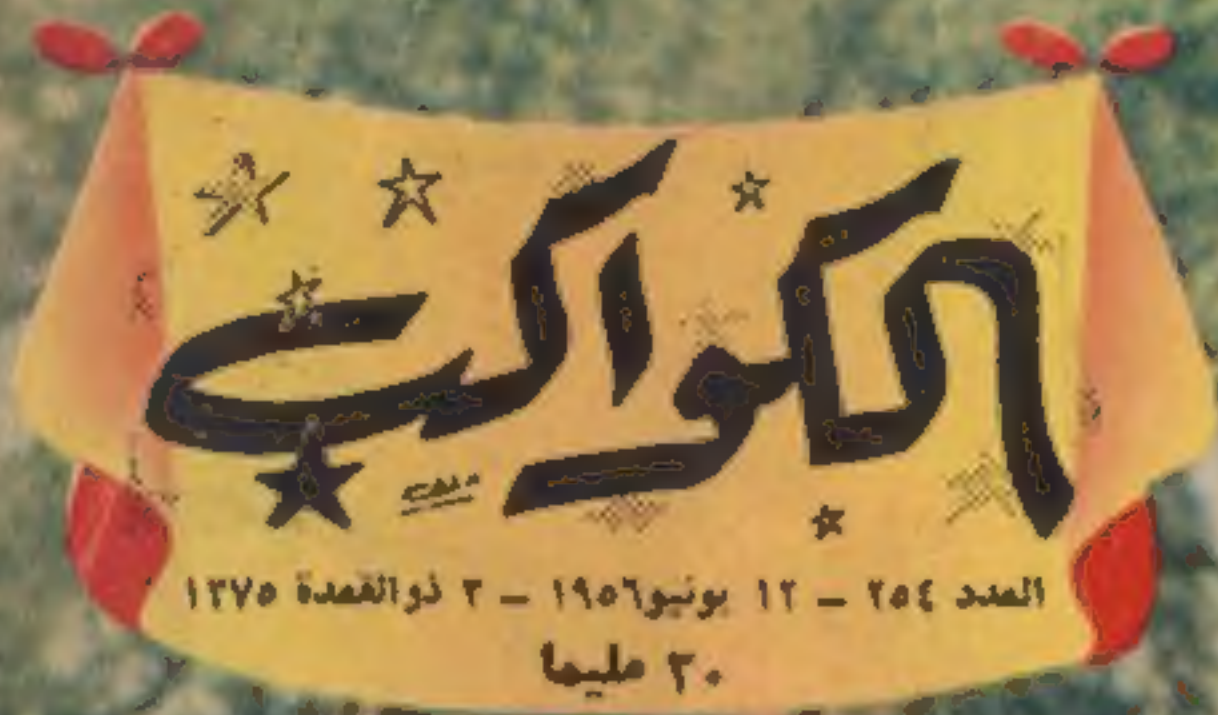 الكواكب
العدد ٢٥٤ – ١٢ يونيو ١٩٥٦ – ٣ ذوالقعدة ١٣٧٥
٣٠ مليما